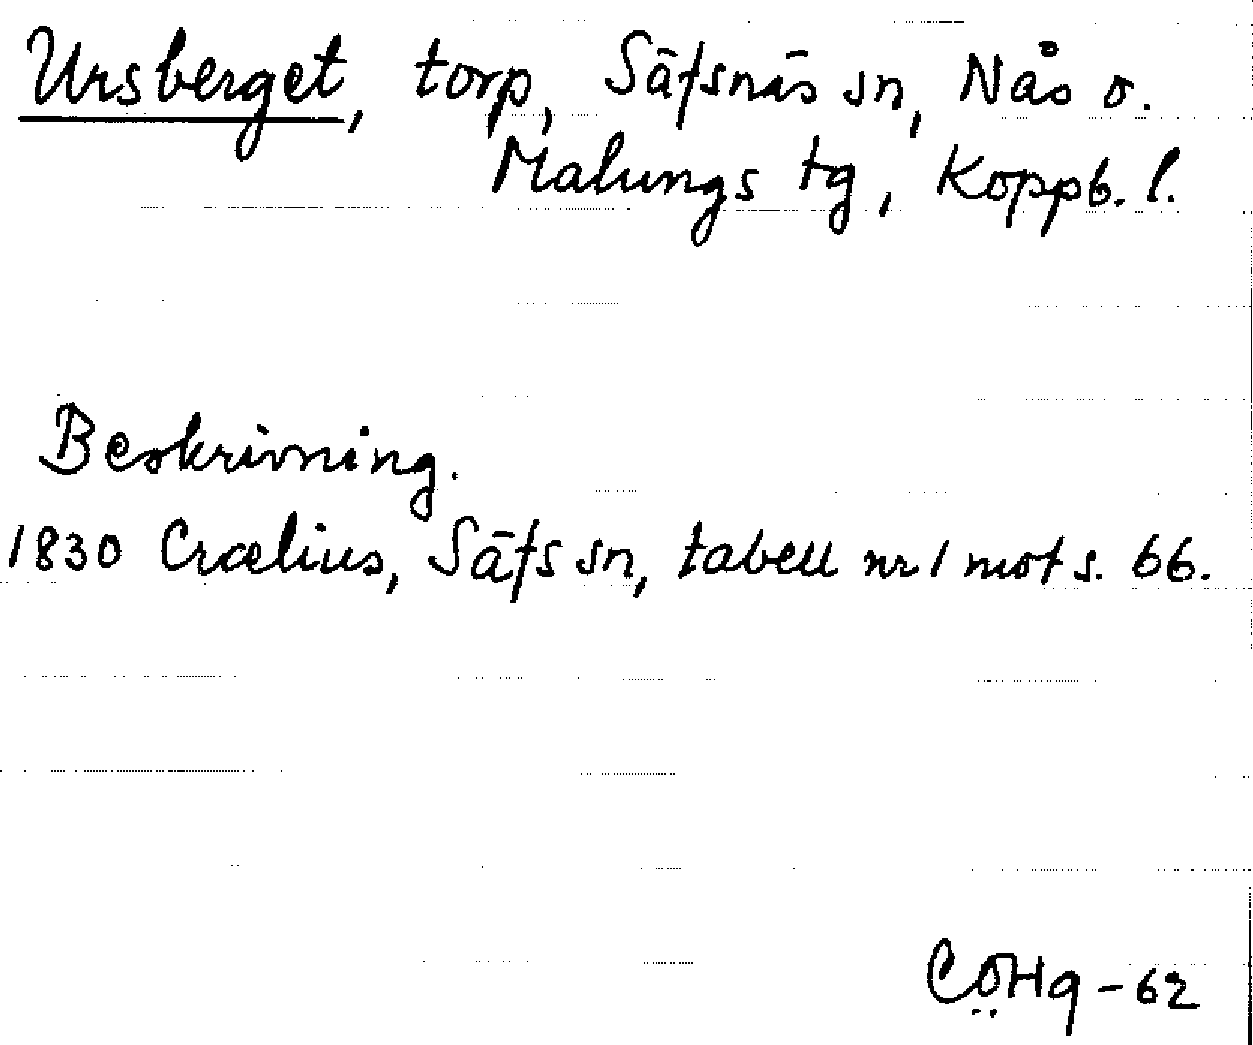 Ursberget, torp, Säfsnäs sn, Nås o.
Malungs tg, Koppb. l.
Beskrivning.
1830 Crælius, Säfs sn, tabell nr 1 mot s. 66.
CÖHq-62